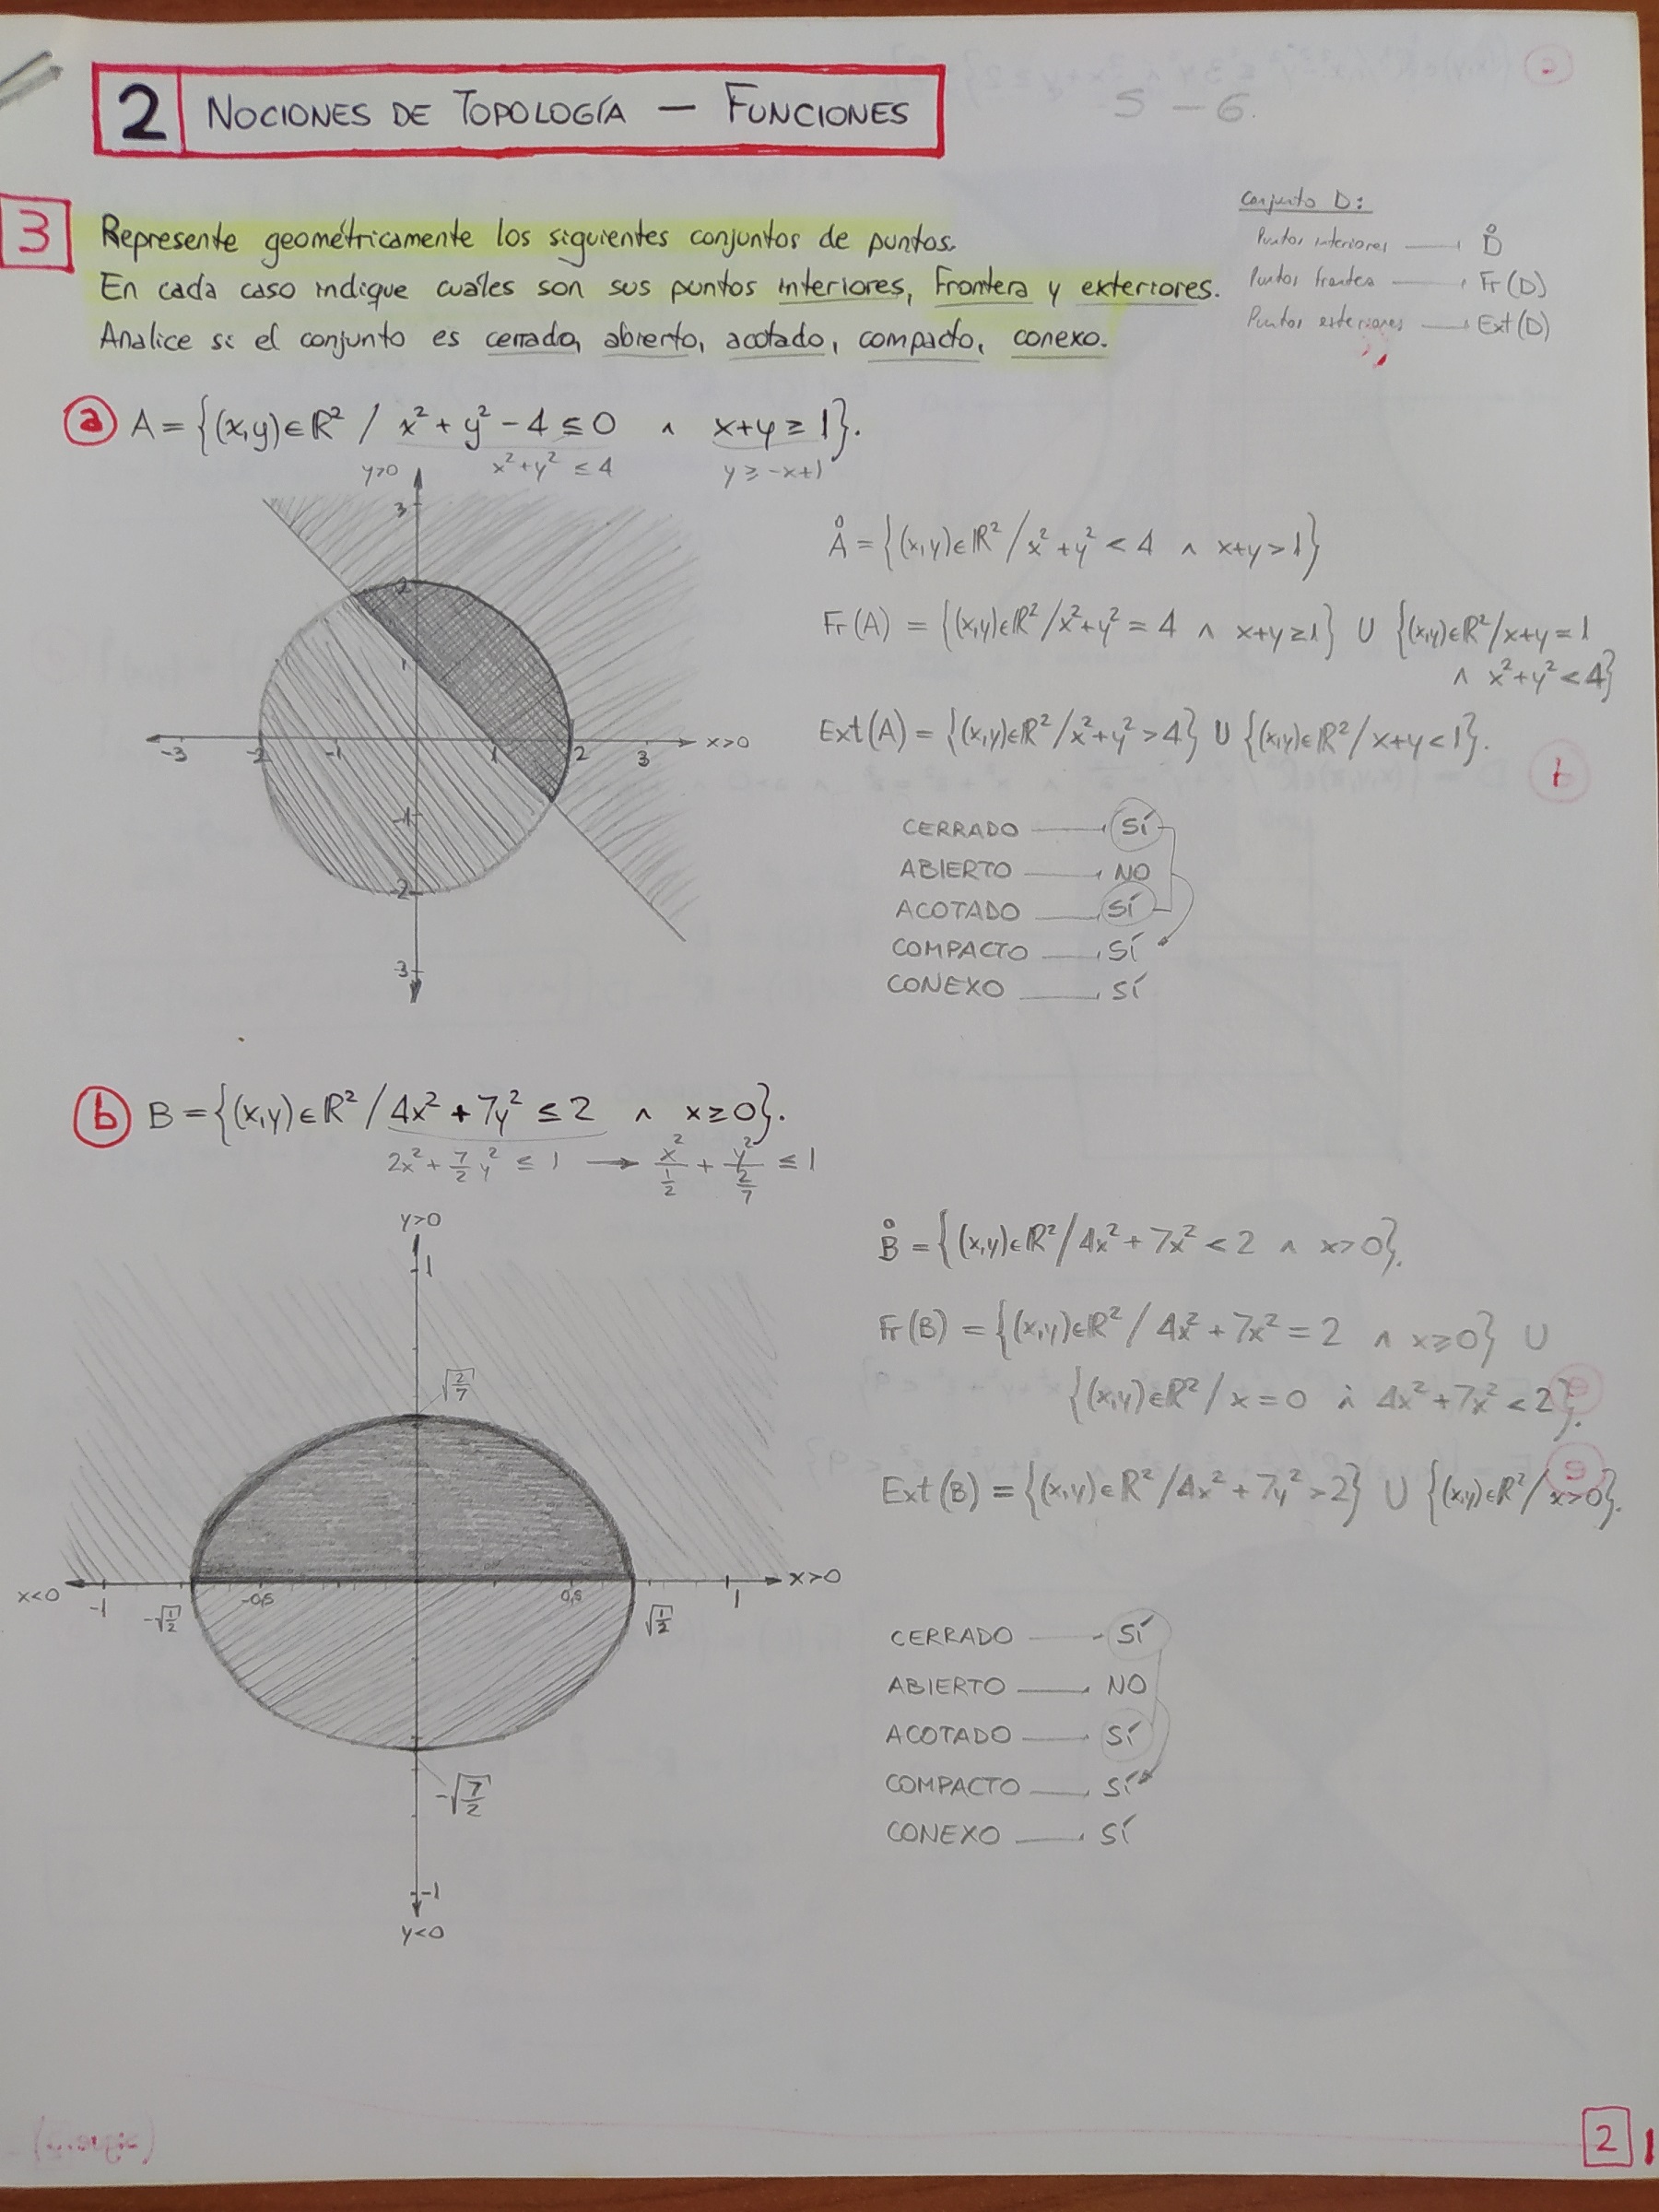 2 NOCIONES DE TOPOLOGÍA — FUNCIONES
5 - 6.
3 Represente geométricamente los siguientes conjuntos de puntos.
En cada caso indique cuáles son sus puntos interiores, Frontera y exteriores.
Analice si el conjunto es cerrado, abierto, acotado, compacto, conexo.
Conjunto D:
Puntos interiores → D̊
Puntos frontera → Fr(D)
Puntos exteriores → Ext(D)
a A = {(x,y)∈ℝ² / x² + y² - 4 ≤ 0 ∧ x+y ≥ 1}.
x² + y² ≤ 4 y ≥ -x+1
y>0
3
2
1
-3 -2 -1 1 2 3 x>0
-1
-2
3
Å = {(x,y)∈ℝ² / x² + y² < 4 ∧ x+y > 1}
Fr(A) = {(x,y)∈ℝ² / x²+y² = 4 ∧ x+y ≥ 1} ∪ {(x,y)∈ℝ² / x+y = 1
∧ x²+y² < 4}
Ext(A) = {(x,y)∈ℝ² / x²+y² > 4} ∪ {(x,y)∈ℝ² / x+y < 1}.
CERRADO → SÍ
ABIERTO → NO
ACOTADO → SÍ
COMPACTO → SÍ
CONEXO → SÍ
b B = {(x,y)∈ℝ² / 4x² + 7y² ≤ 2 ∧ x ≥ 0}.
2x² + 7/2 y² ≤ 1 → x²/(1/2) + y²/(2/7) ≤ 1
y>0
1
√(2/7)
x<0 -1 -√(1/2) -0,5 0,5 √(1/2) 1 x>0
-√(7/2)
-1
y<0
B̊ = {(x,y)∈ℝ² / 4x² + 7x² < 2 ∧ x>0}.
Fr(B) = {(x,y)∈ℝ² / 4x² + 7x² = 2 ∧ x≥0} ∪
{(x,y)∈ℝ² / x = 0 ∧ 4x² + 7x² < 2}.
Ext(B) = {(x,y)∈ℝ² / 4x² + 7y² > 2} ∪ {(x,y)∈ℝ² / x>0}.
CERRADO → SÍ
ABIERTO → NO
ACOTADO → SÍ
COMPACTO → SÍ
CONEXO → SÍ
2 1